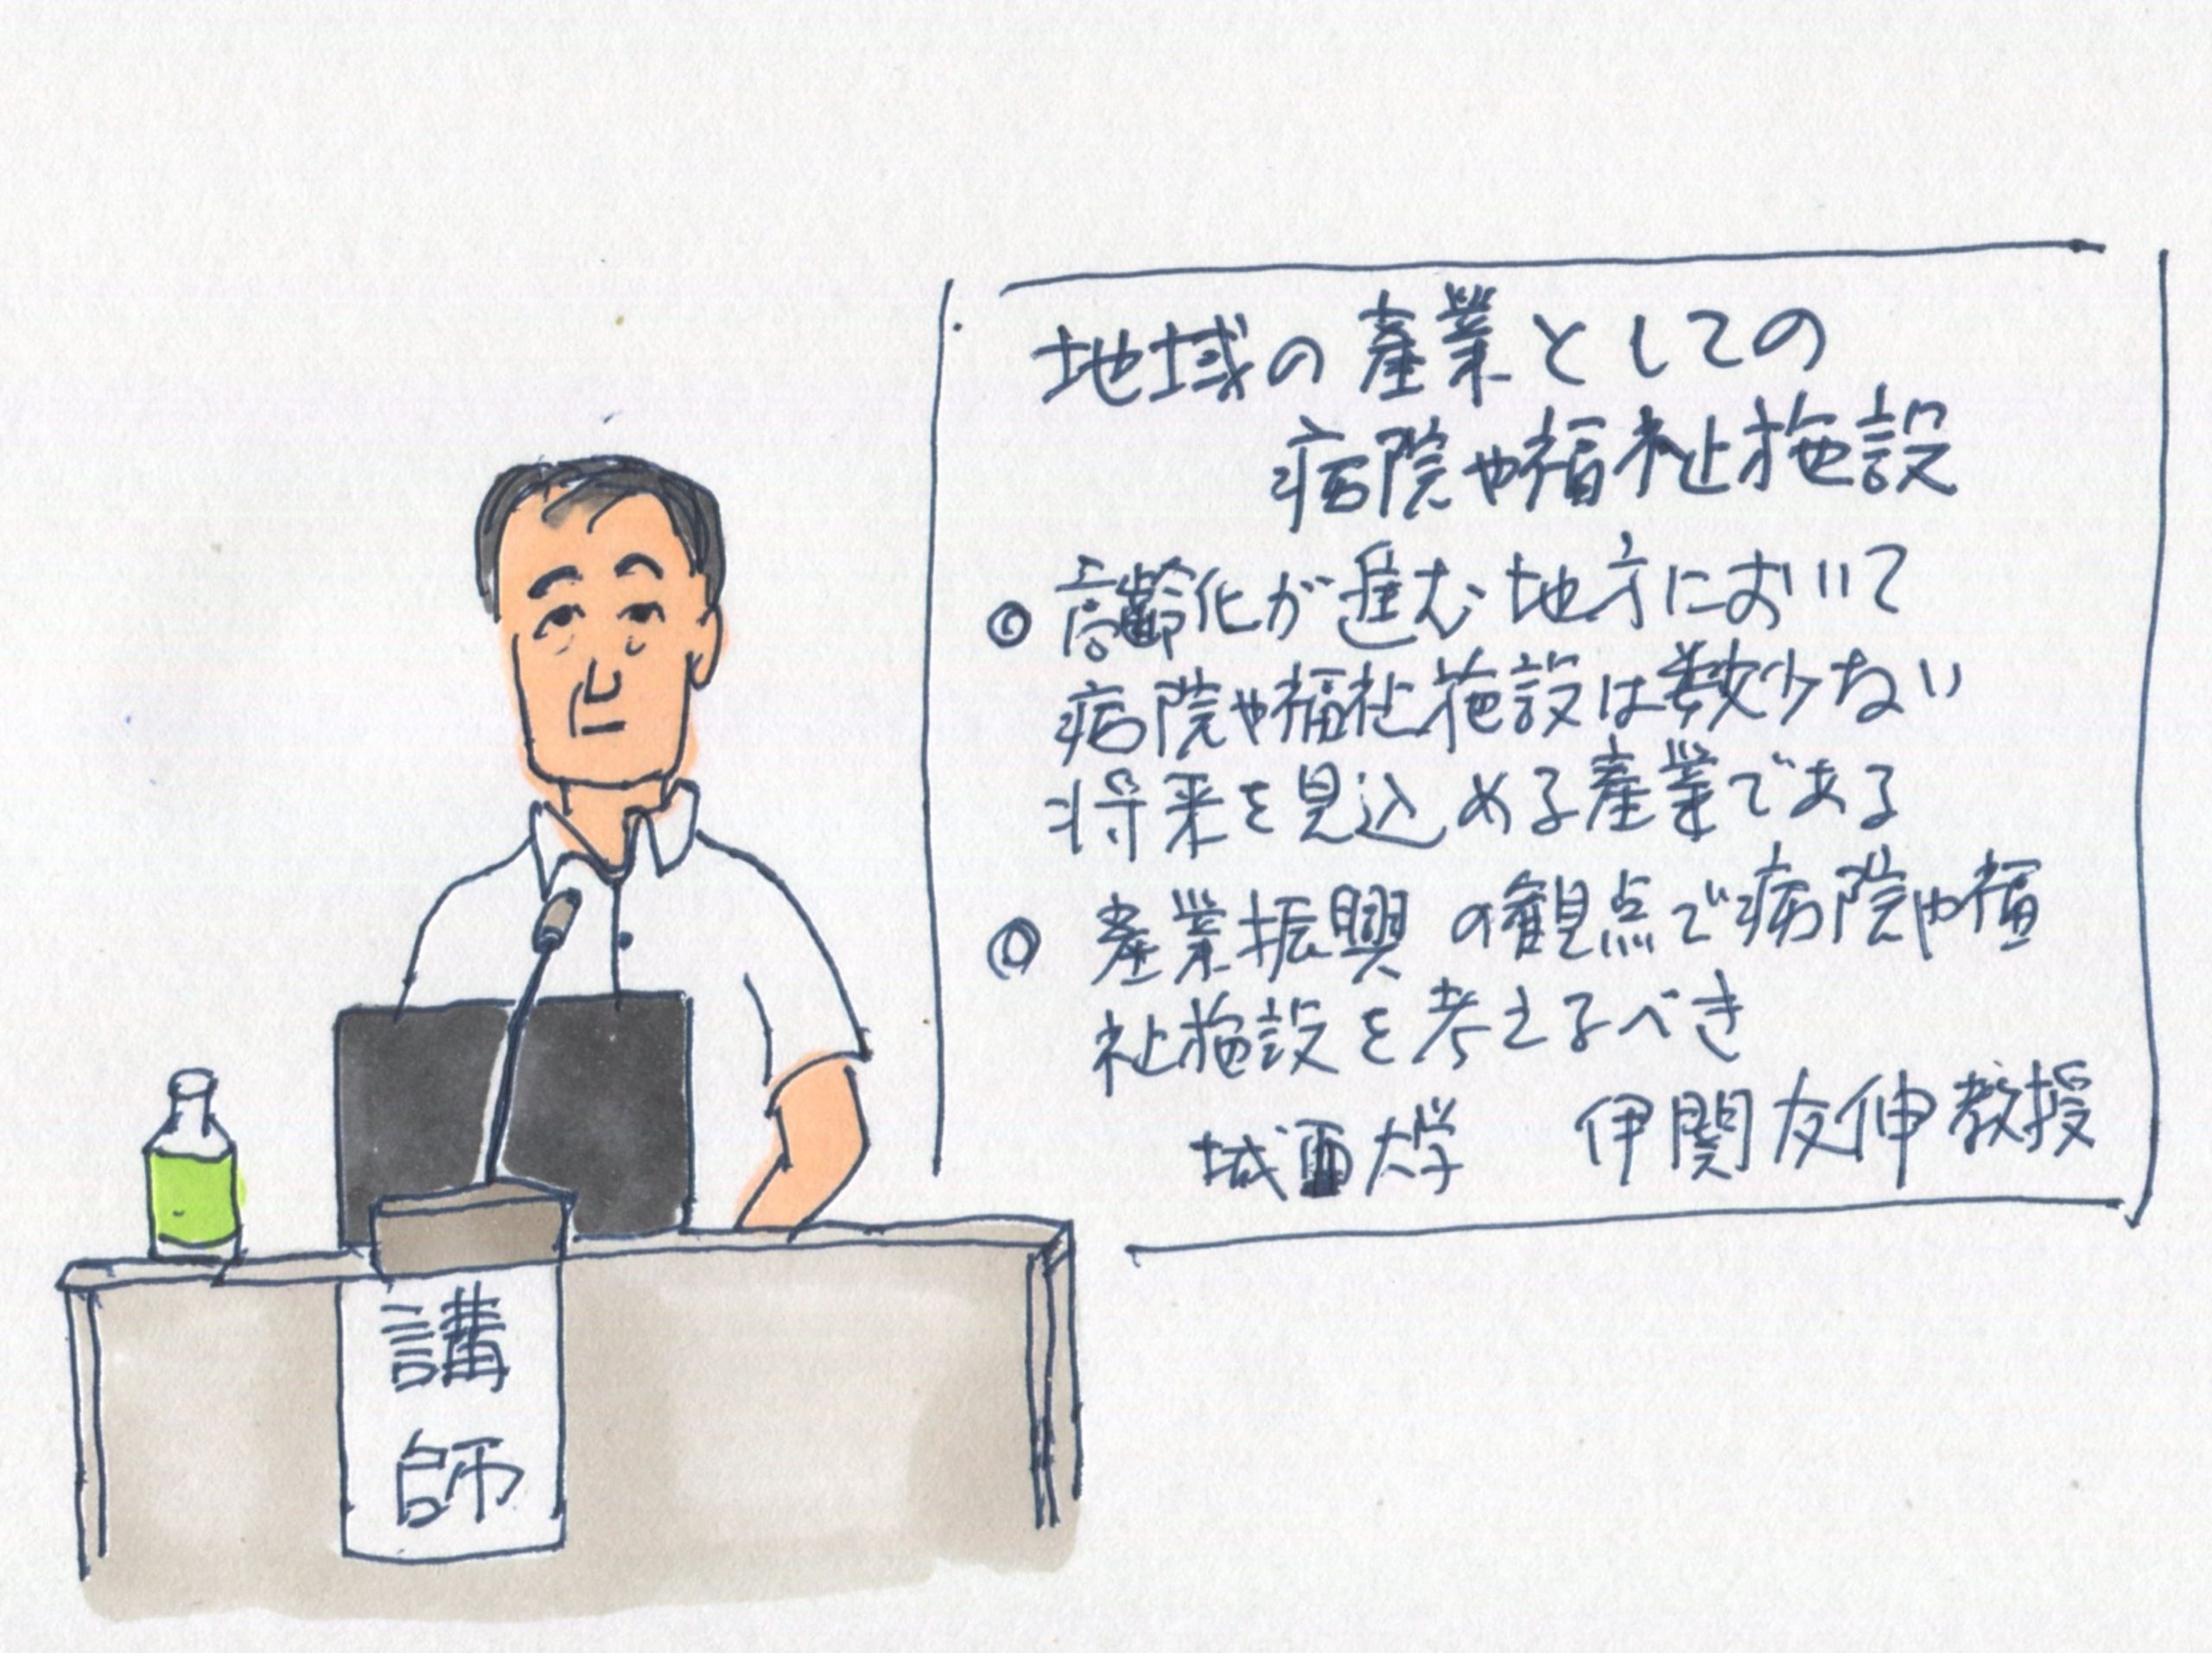 地域の産業としての
病院や福祉施設
◎高齢化が進む地方において
病院や福祉施設は数少ない
将来を見込める産業である
◎産業振興の観点で病院や福
祉施設を考えるべき
城西大学 伊関友伸教授
講
師